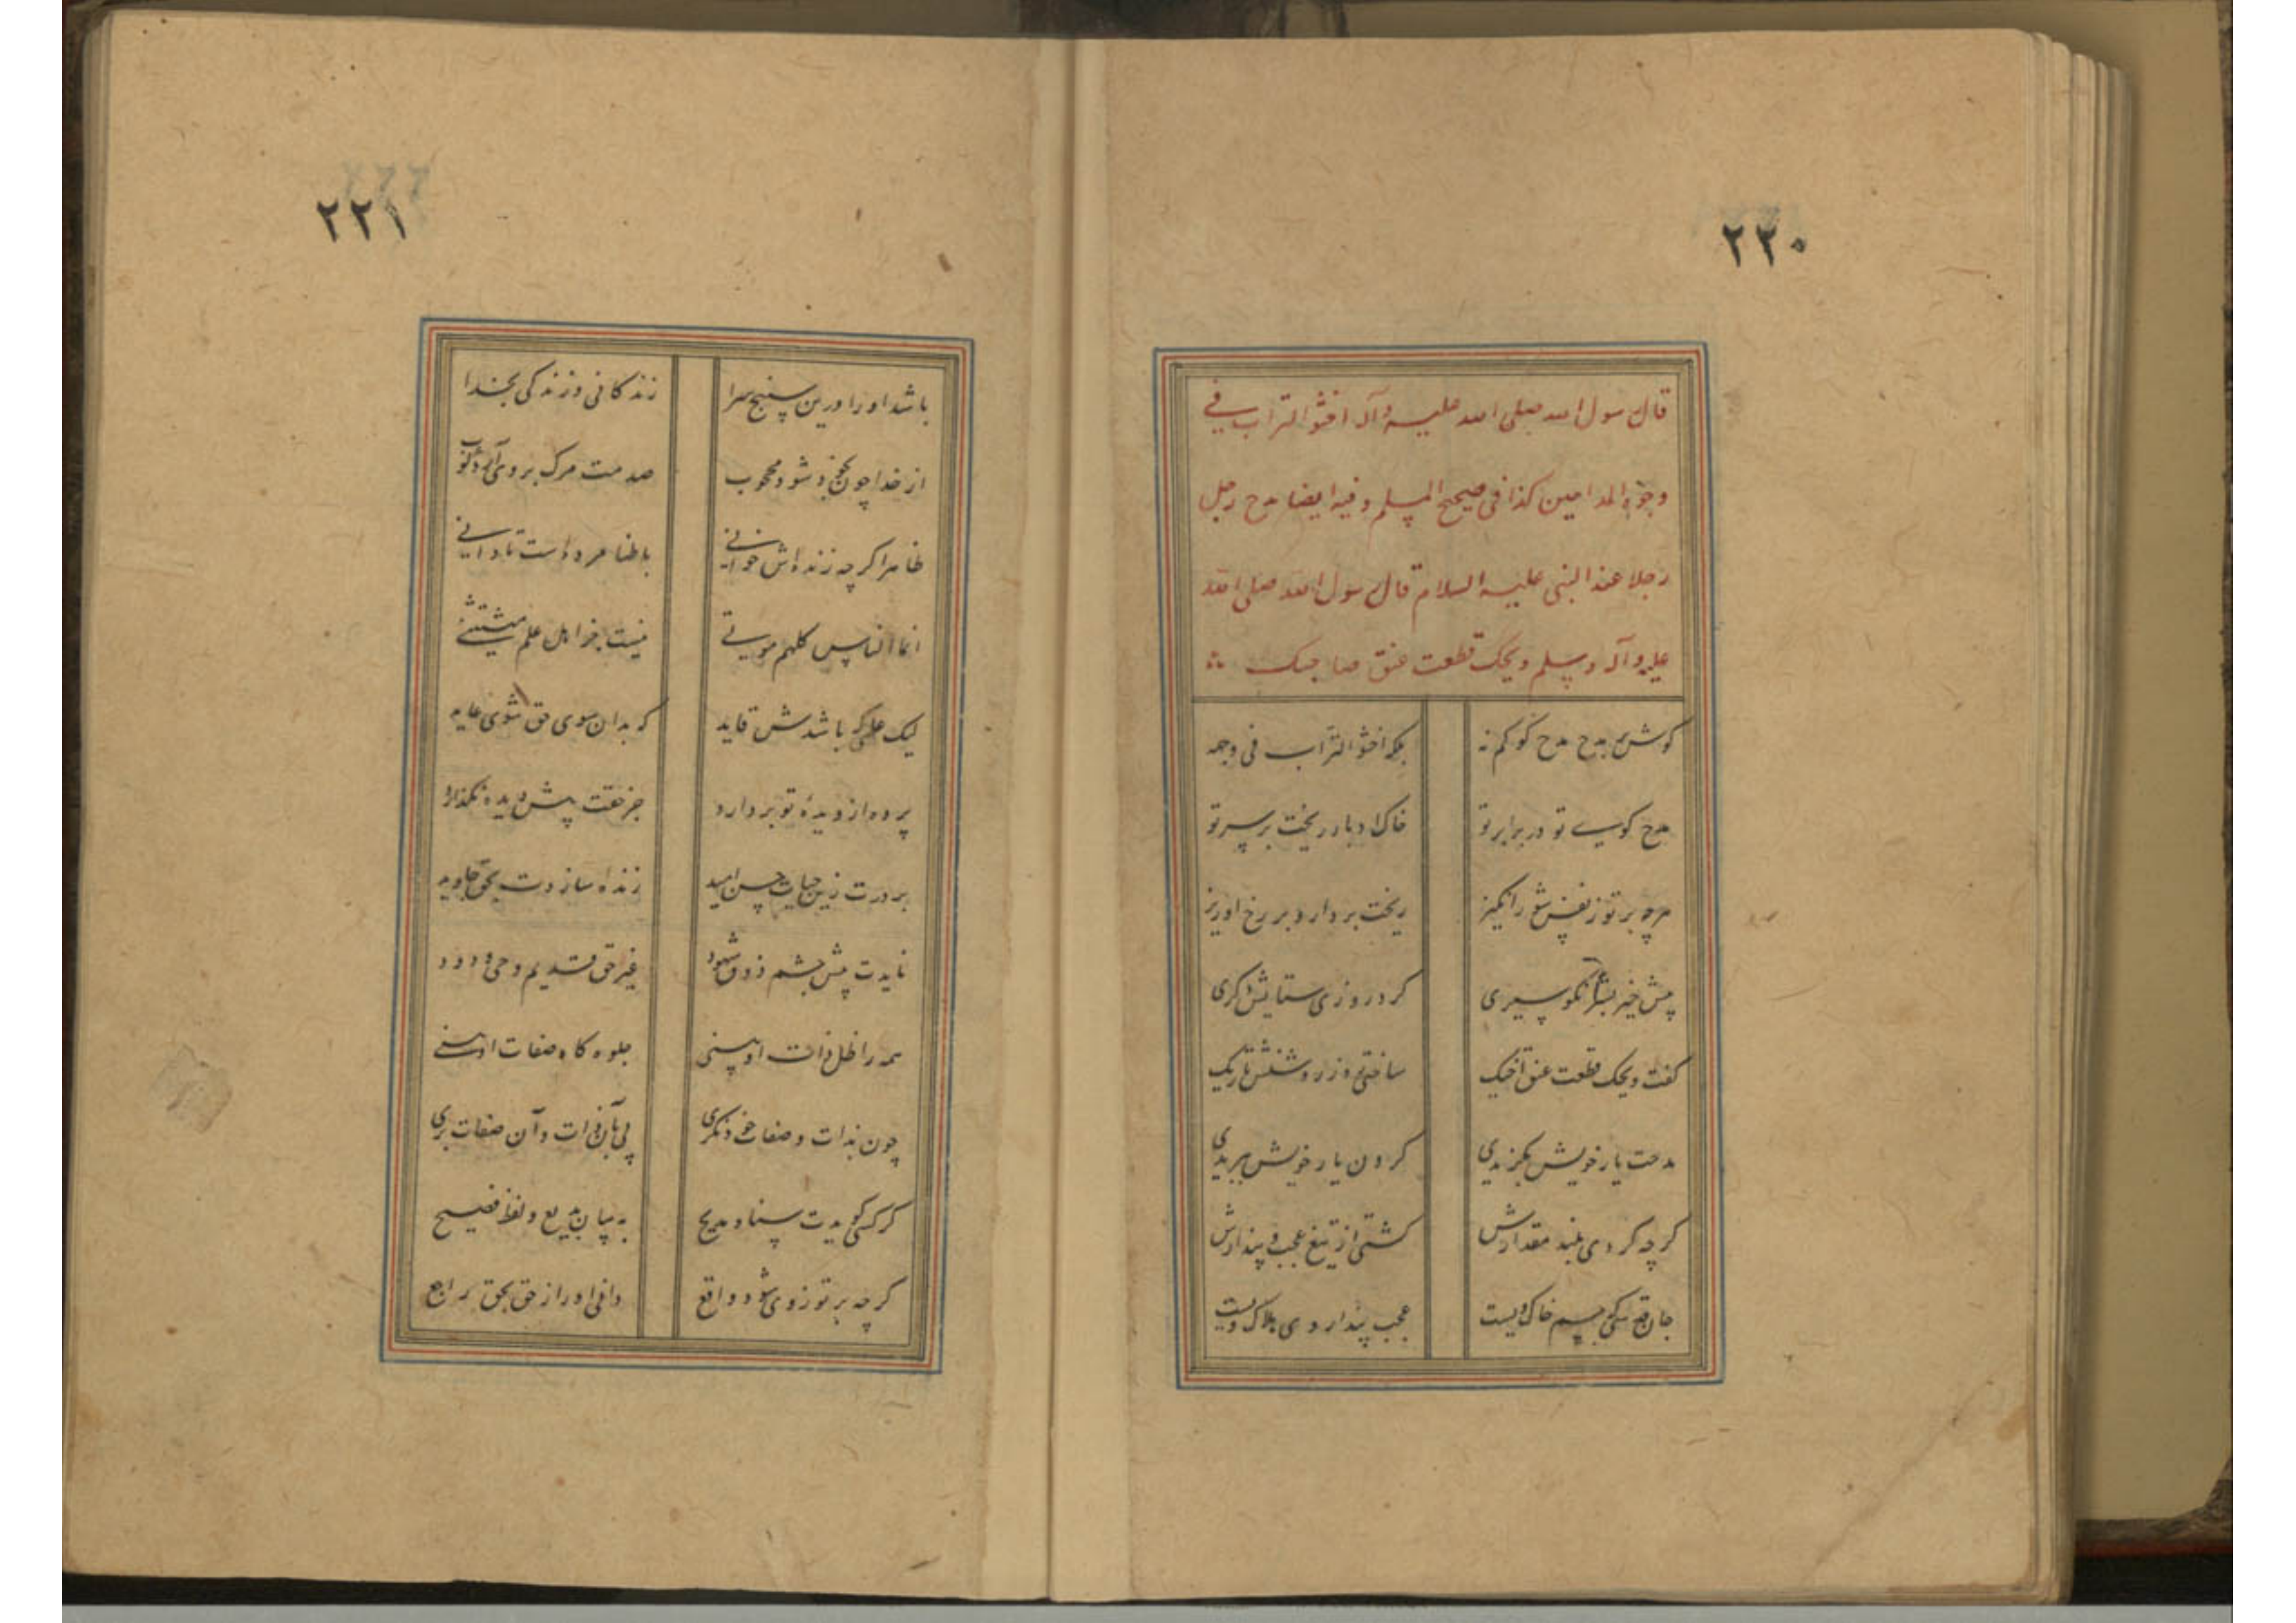 ۲۲۰
قال رسول الله صلی الله علیه وآله احثوا التراب فی
وجوه المداحین کذا فی صحیح المسلم وفیه ایضا مدح رجل
رجلا عند النبی علیه السلام قال رسول الله صلی الله
علیه وآله وسلم ویحک قطعت عنق صاحبک
کوش بر مدح مدح کو کم نه بلکه احثوا التراب فی وجهه
مدح کویی تو در برابر تو خاک ادبار ریخت بر سر تو
هرچه بر تو ز نفس شور انکیز ریخت بردار و بر رخ او ریز
پیش خیر بشر نکو سیری کرد روزی ستایش دکری
کفت ویحک قطعت عنق اخیک ساختی روز روشنش تاریک
مدحت یار خویش بکزیدی کردن یار خویش ببریدی
کرچه کردی بلند مقدارش کشتی از تیغ عجب و پندارش
جان قدسی که جسم خاک ویست عجب و پندار وی هلاک ویست
۲۲۱
باشد او را درین سپنج سرا زندکانی و زندکی بخدا
از خدا چون بخود شود محجوب صدمت مرک بر وی آرد کوب
ظاهرا کرچه زنده اش خوانی باطنا مرده است تا دانی
انما الناس کلهم موتی نیست جز اهل علم مستثنی
لیک علمی که باشدش قاید که بدان سوی حق شوی عاید
پرده از دیدهٔ تو بردارد جز حقت پیش دیده نکذارد
بر درت زین حیات حسن امید زنده سازدت بحق جاوید
نایدت پیش چشم ذوق شهود غیر حق قدیم وحی ودود
همه را ظل ذات او بینی جلوه کاه صفات او بینی
چون بذات و صفات خود نکری پی بآن ذات و آن صفات بری
کر کسی کویدت سنا و مدیح به بیان بدیع و لفظ فصیح
کرچه بر تو ز وی شود واقع دانی او را ز حق بحق راجع